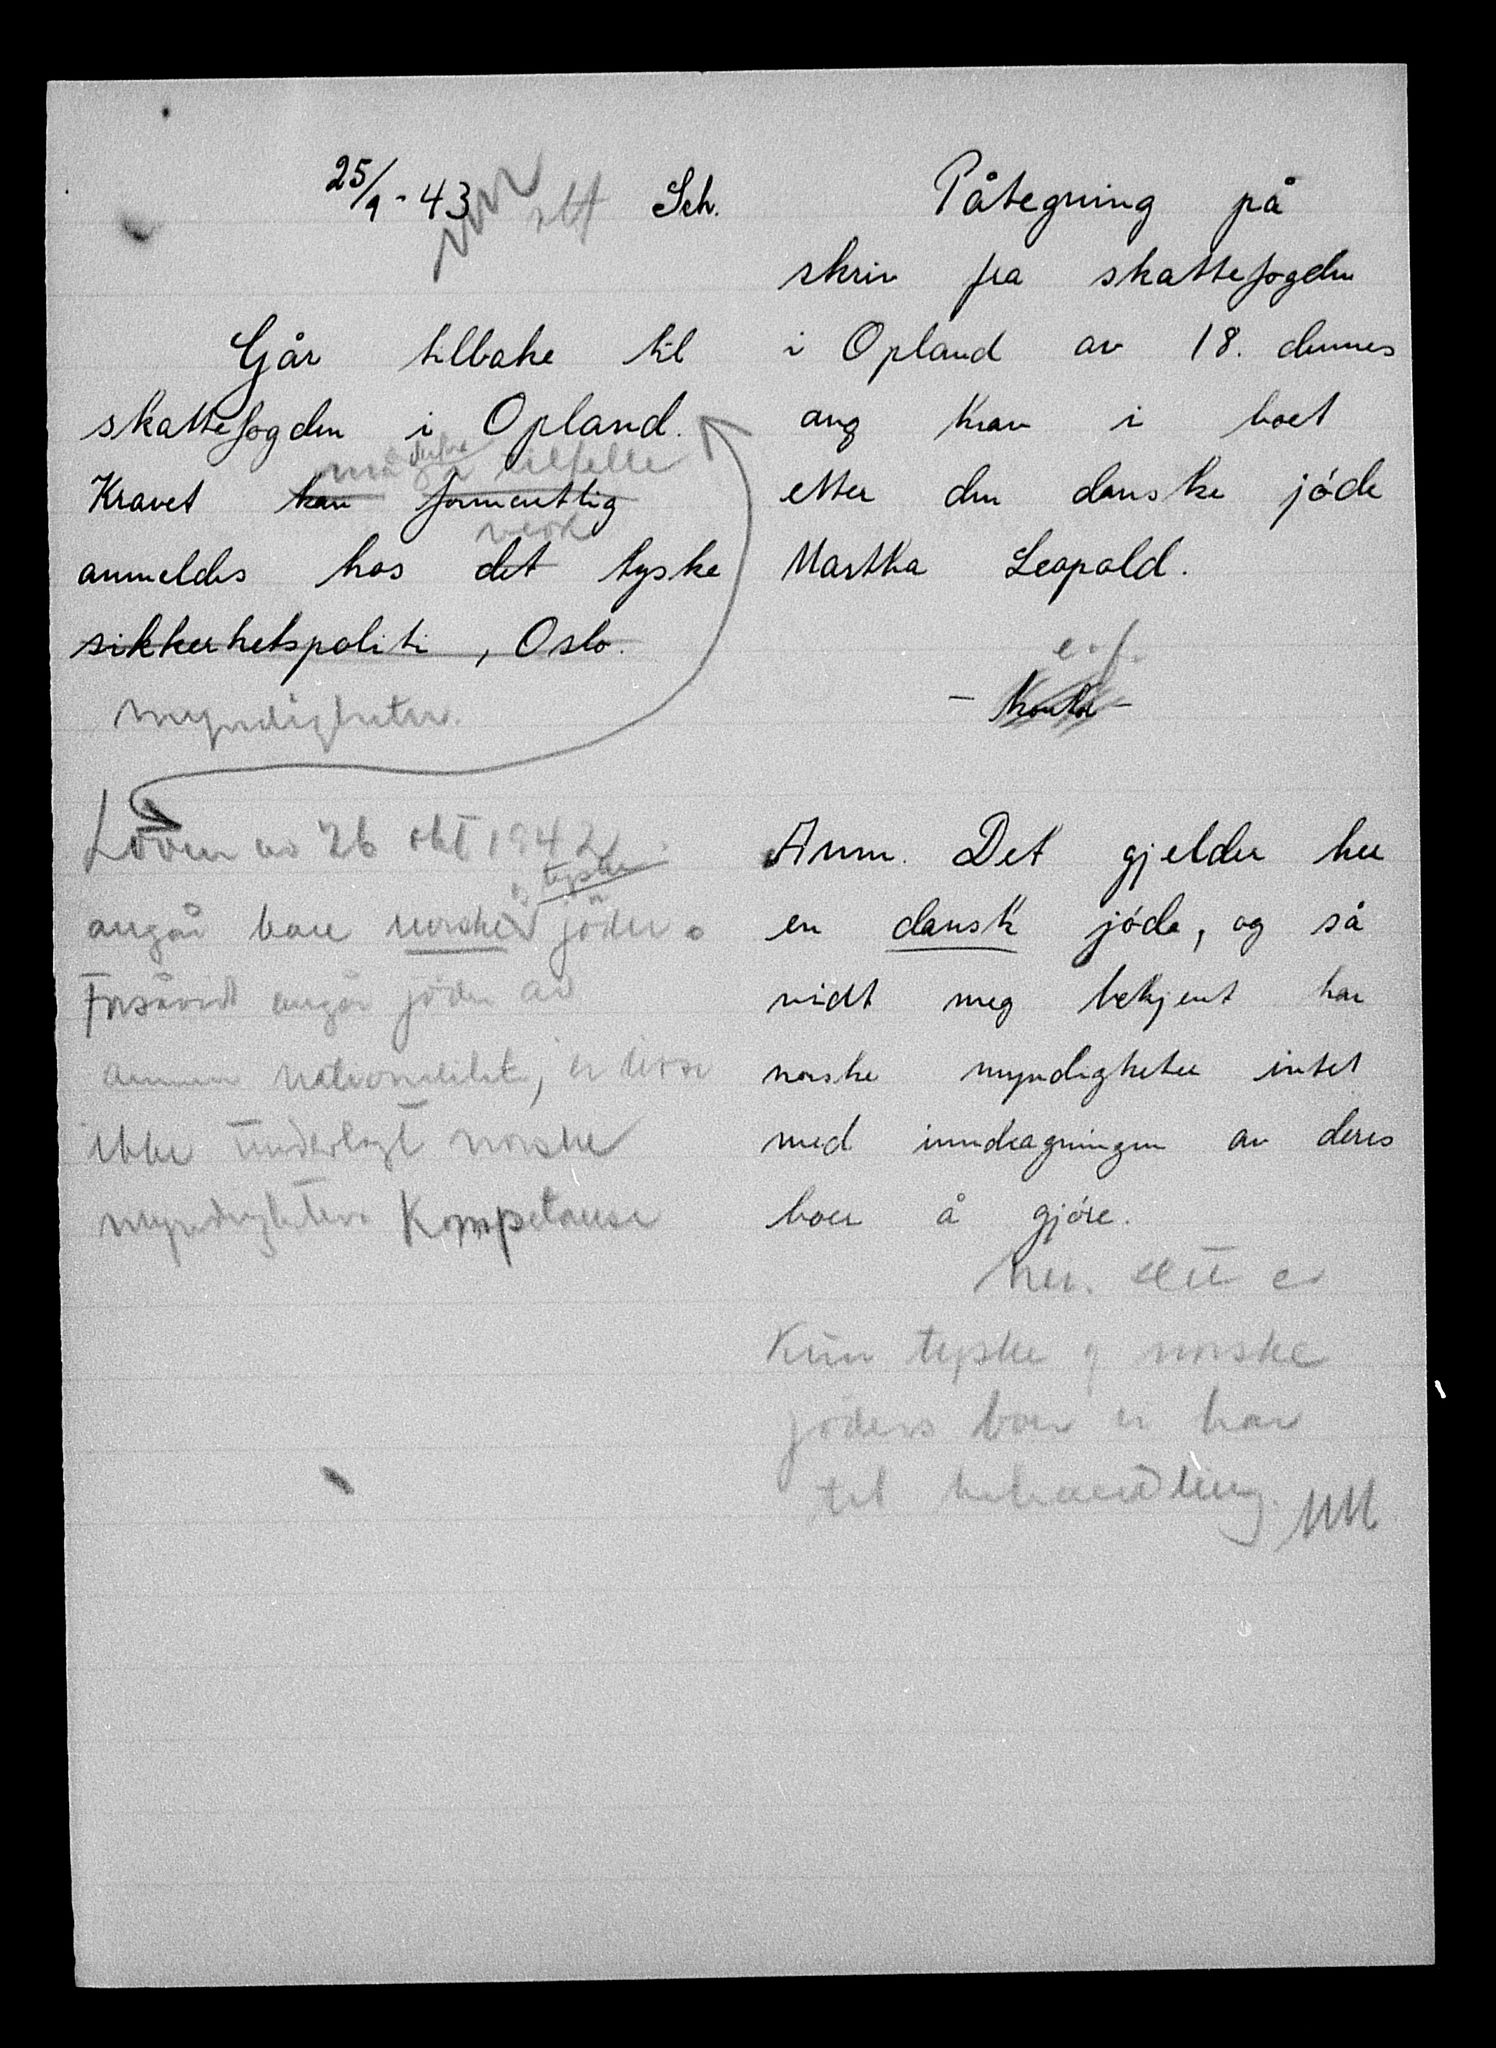 25/9 - 43 Sch.
Går tilbake til
skattefogden i Opland.
må derfor i tilfelle
Kravet kan formentlig
anmeldes hos det tyske
sikkerhetspoliti, Oslo.
myndigheter.
Loven av 26 okt 1942
og tyske
angår bare norske jöder.
Forsåvidt angår jöder av
annen nationalitet, er disse
ikke underlagt norske
myndigheters Kompetanse
Påtegning på
skriv fra skattefogden
i Opland av 18. dennes
ang krav i boet
etter den danske jóde
Martha Leopold.
e.f.
Anm. Det gjelder her
en dansk jóde, og så
vidt meg bekjent har
norske myndigheter intet
med inndragningen av deres
boer å gjóre.
Nei. Det er
Kun tyske og norske
jöders boer vi har
til behandling. MM